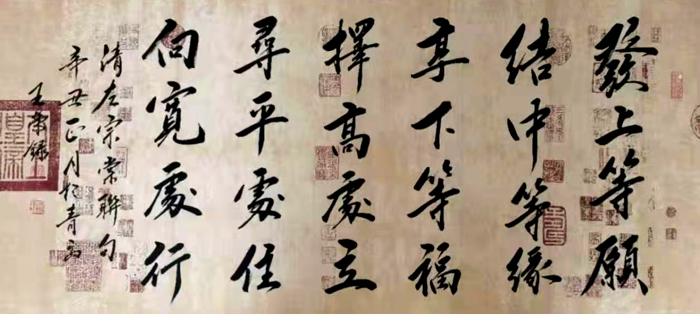 發上等願
结中等緣
享下等福
擇高處立
尋平處住
向寬處行
清左宗棠聯句
辛丑正月於青